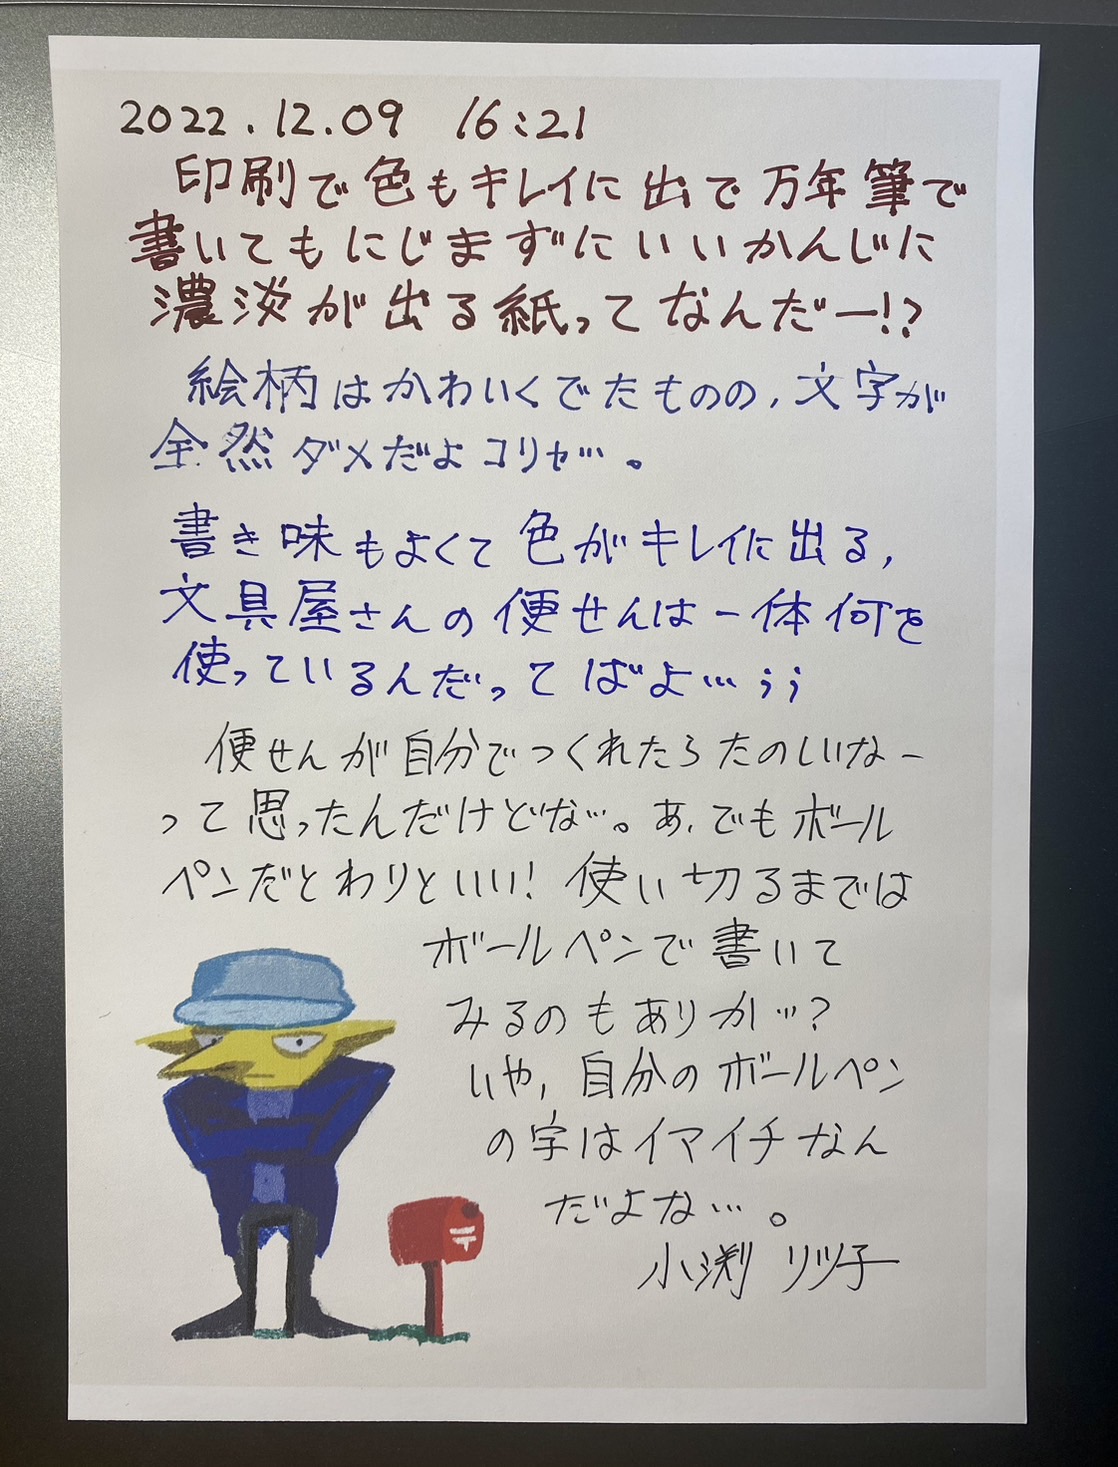 2022.12.09 16:21
印刷で色もキレイに出で万年筆で
書いてもにじまずにいいかんじに
濃淡が出る紙ってなんだー!?
絵柄はかわいくでたものの,文字が
全然ダメだよコリャ…。
書き味もよくて色がキレイに出る,
文具屋さんの便せんは一体何を
使っているんだってばよ…;;
便せんが自分でつくれたらたのしいなー
って思ったんだけどな…。あ,でもボール
ペンだとわりといい!使い切るまでは
ボールペンで書いて
みるのもありか…?
いや,自分のボールペン
の字はイマイチなん
だよな…。
小渕 リツ子